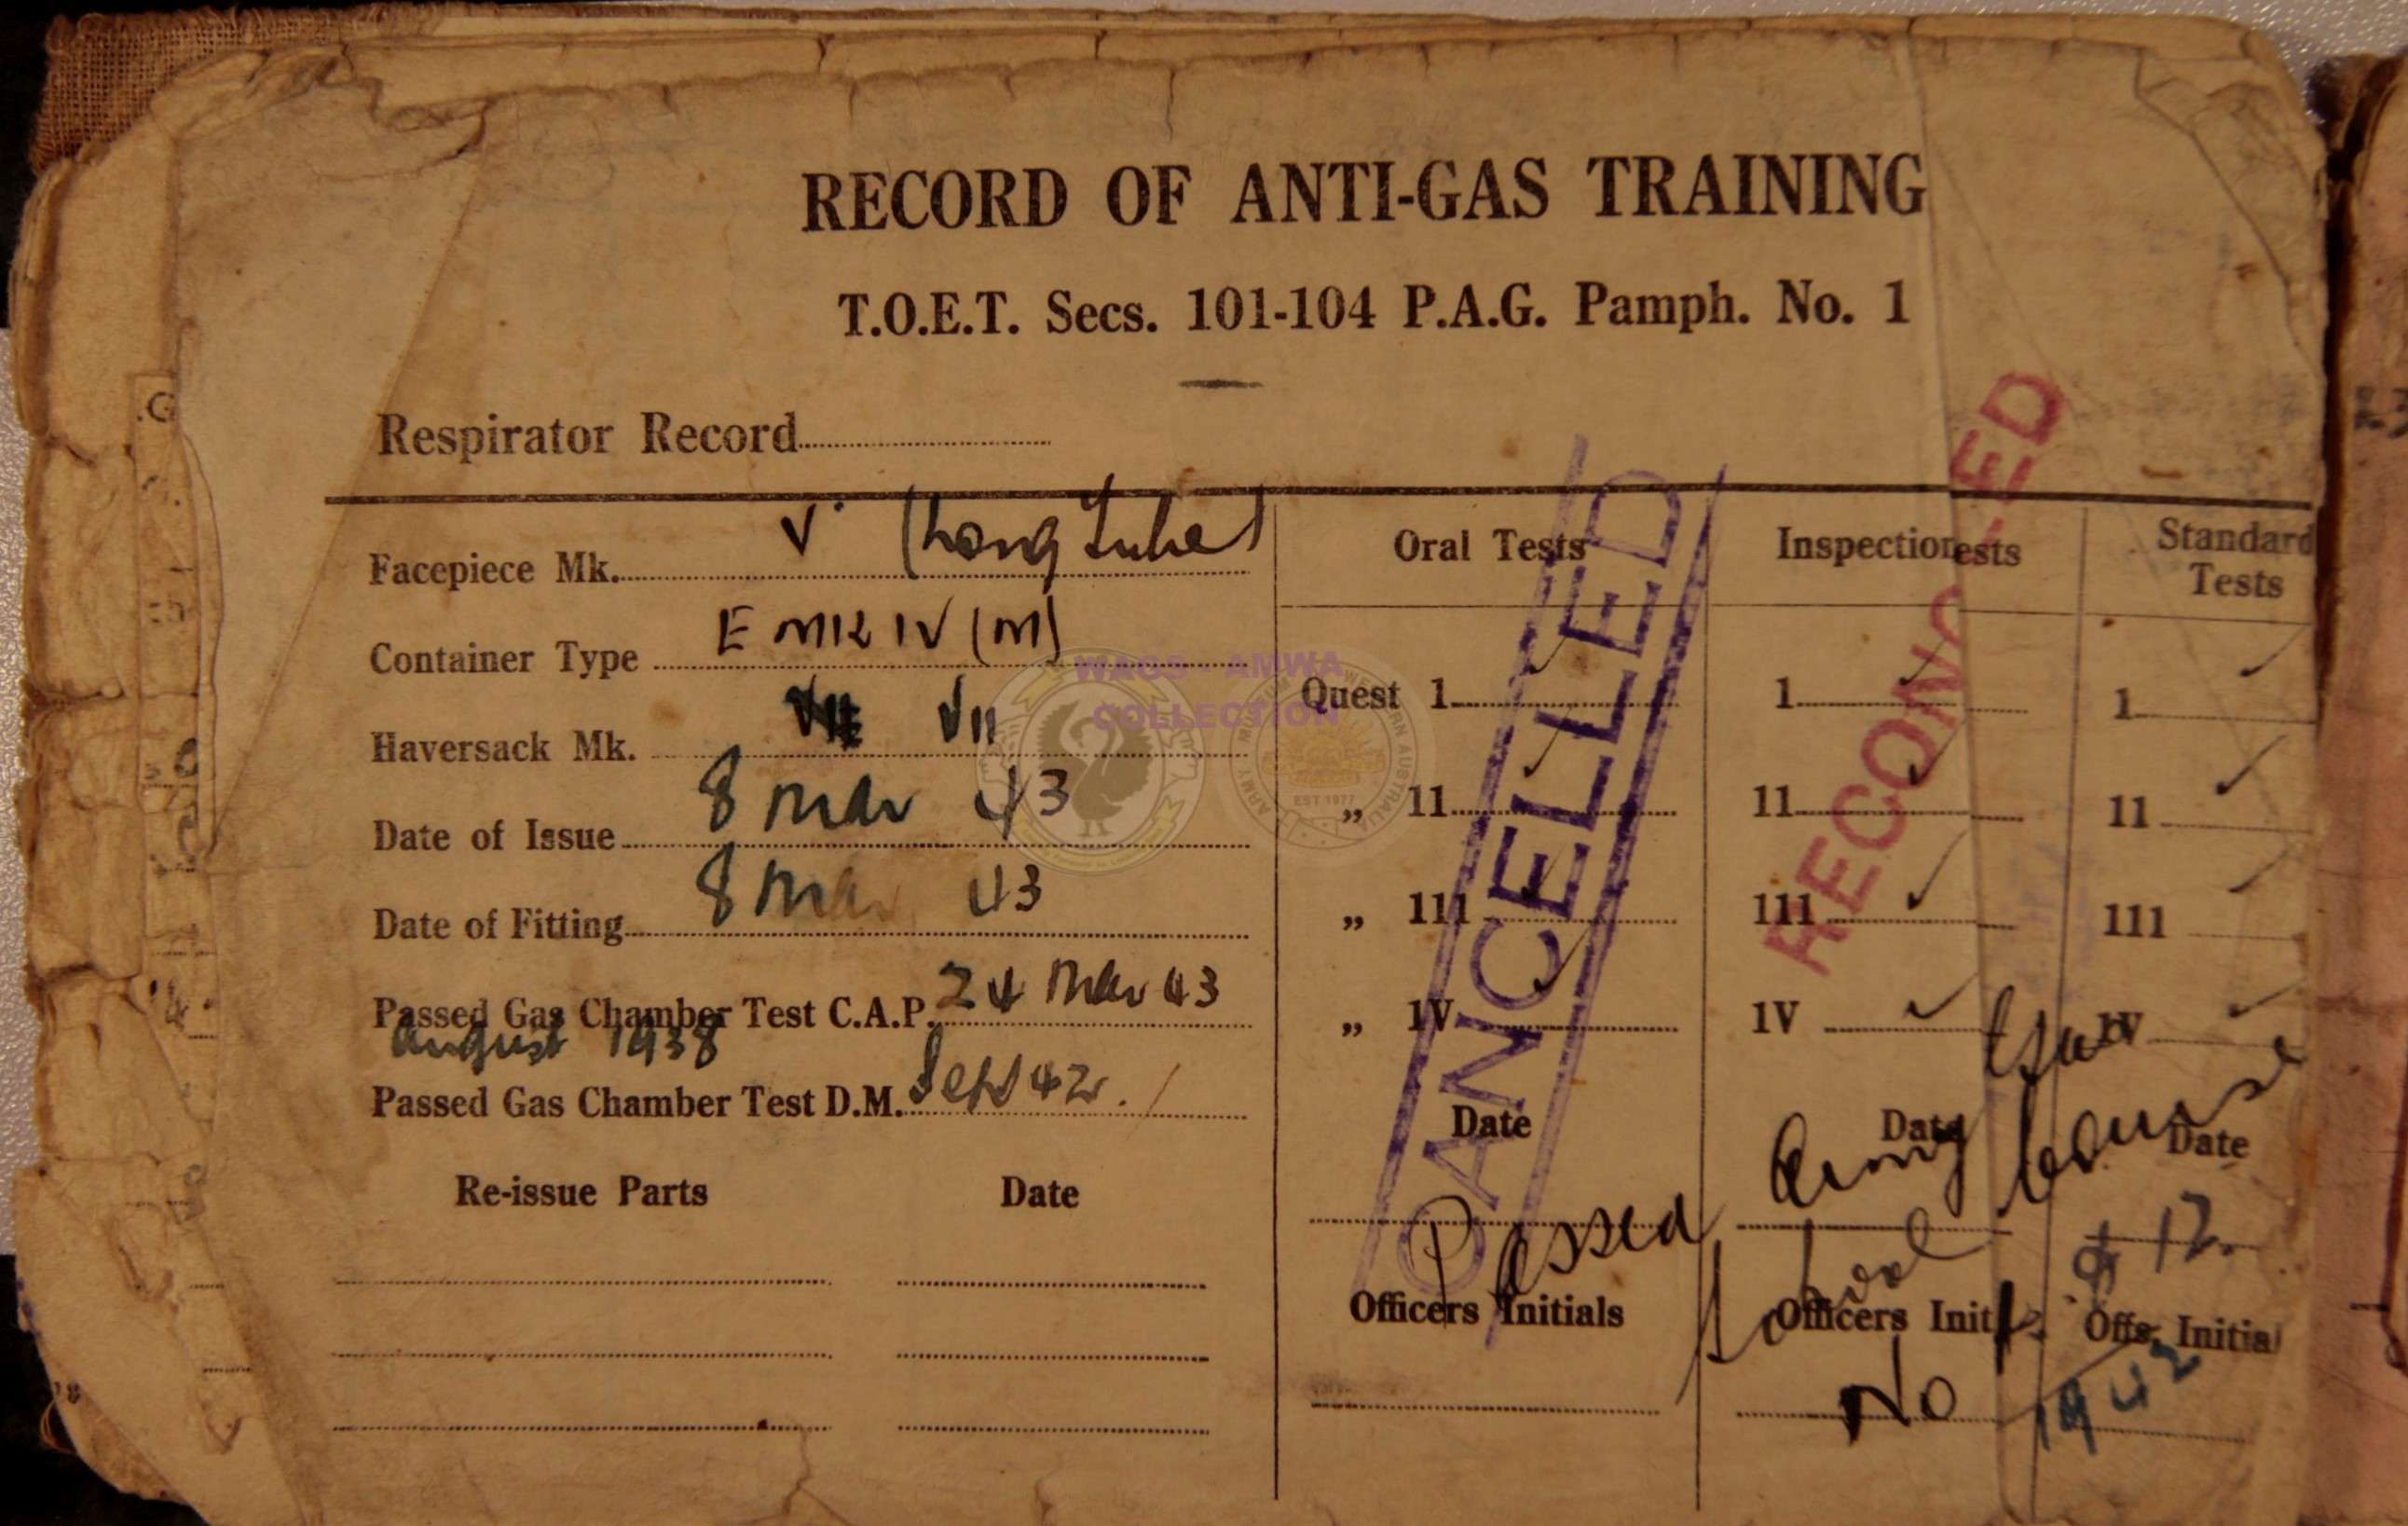 RECORD OF ANTI-GAS TRAINING
T.O.E.T. Secs. 101-104 P.A.G. Pamph. No. 1
Respirator Record
Facepiece Mk. V (Long tube)
Container Type E MK IV (M)
Haversack Mk. VII VII
Date of Issue 8 Mar 43
Date of Fitting 8 Mar 43
Passed Gas Chamber Test C.A.P. 24 Mar 43
August 1938
Passed Gas Chamber Test D.M. Sept 42.
Re-issue Parts Date
Oral Tests
Quest 1
„ 11
„ 111
„ 1V
Date
Passed
Officers Initials
Inspection ests
1
11
111
1V
Date
Army
School
Officers Init
No
Standard
Tests
1
11
111
1V
Date
Course
12.
Offs. Initial
1942
CANCELLED
RECONG-ED
WAGS - AMWA
COLLECTION
ARMY MUSEUM WESTERN AUSTRALIA
EST 1977
.G